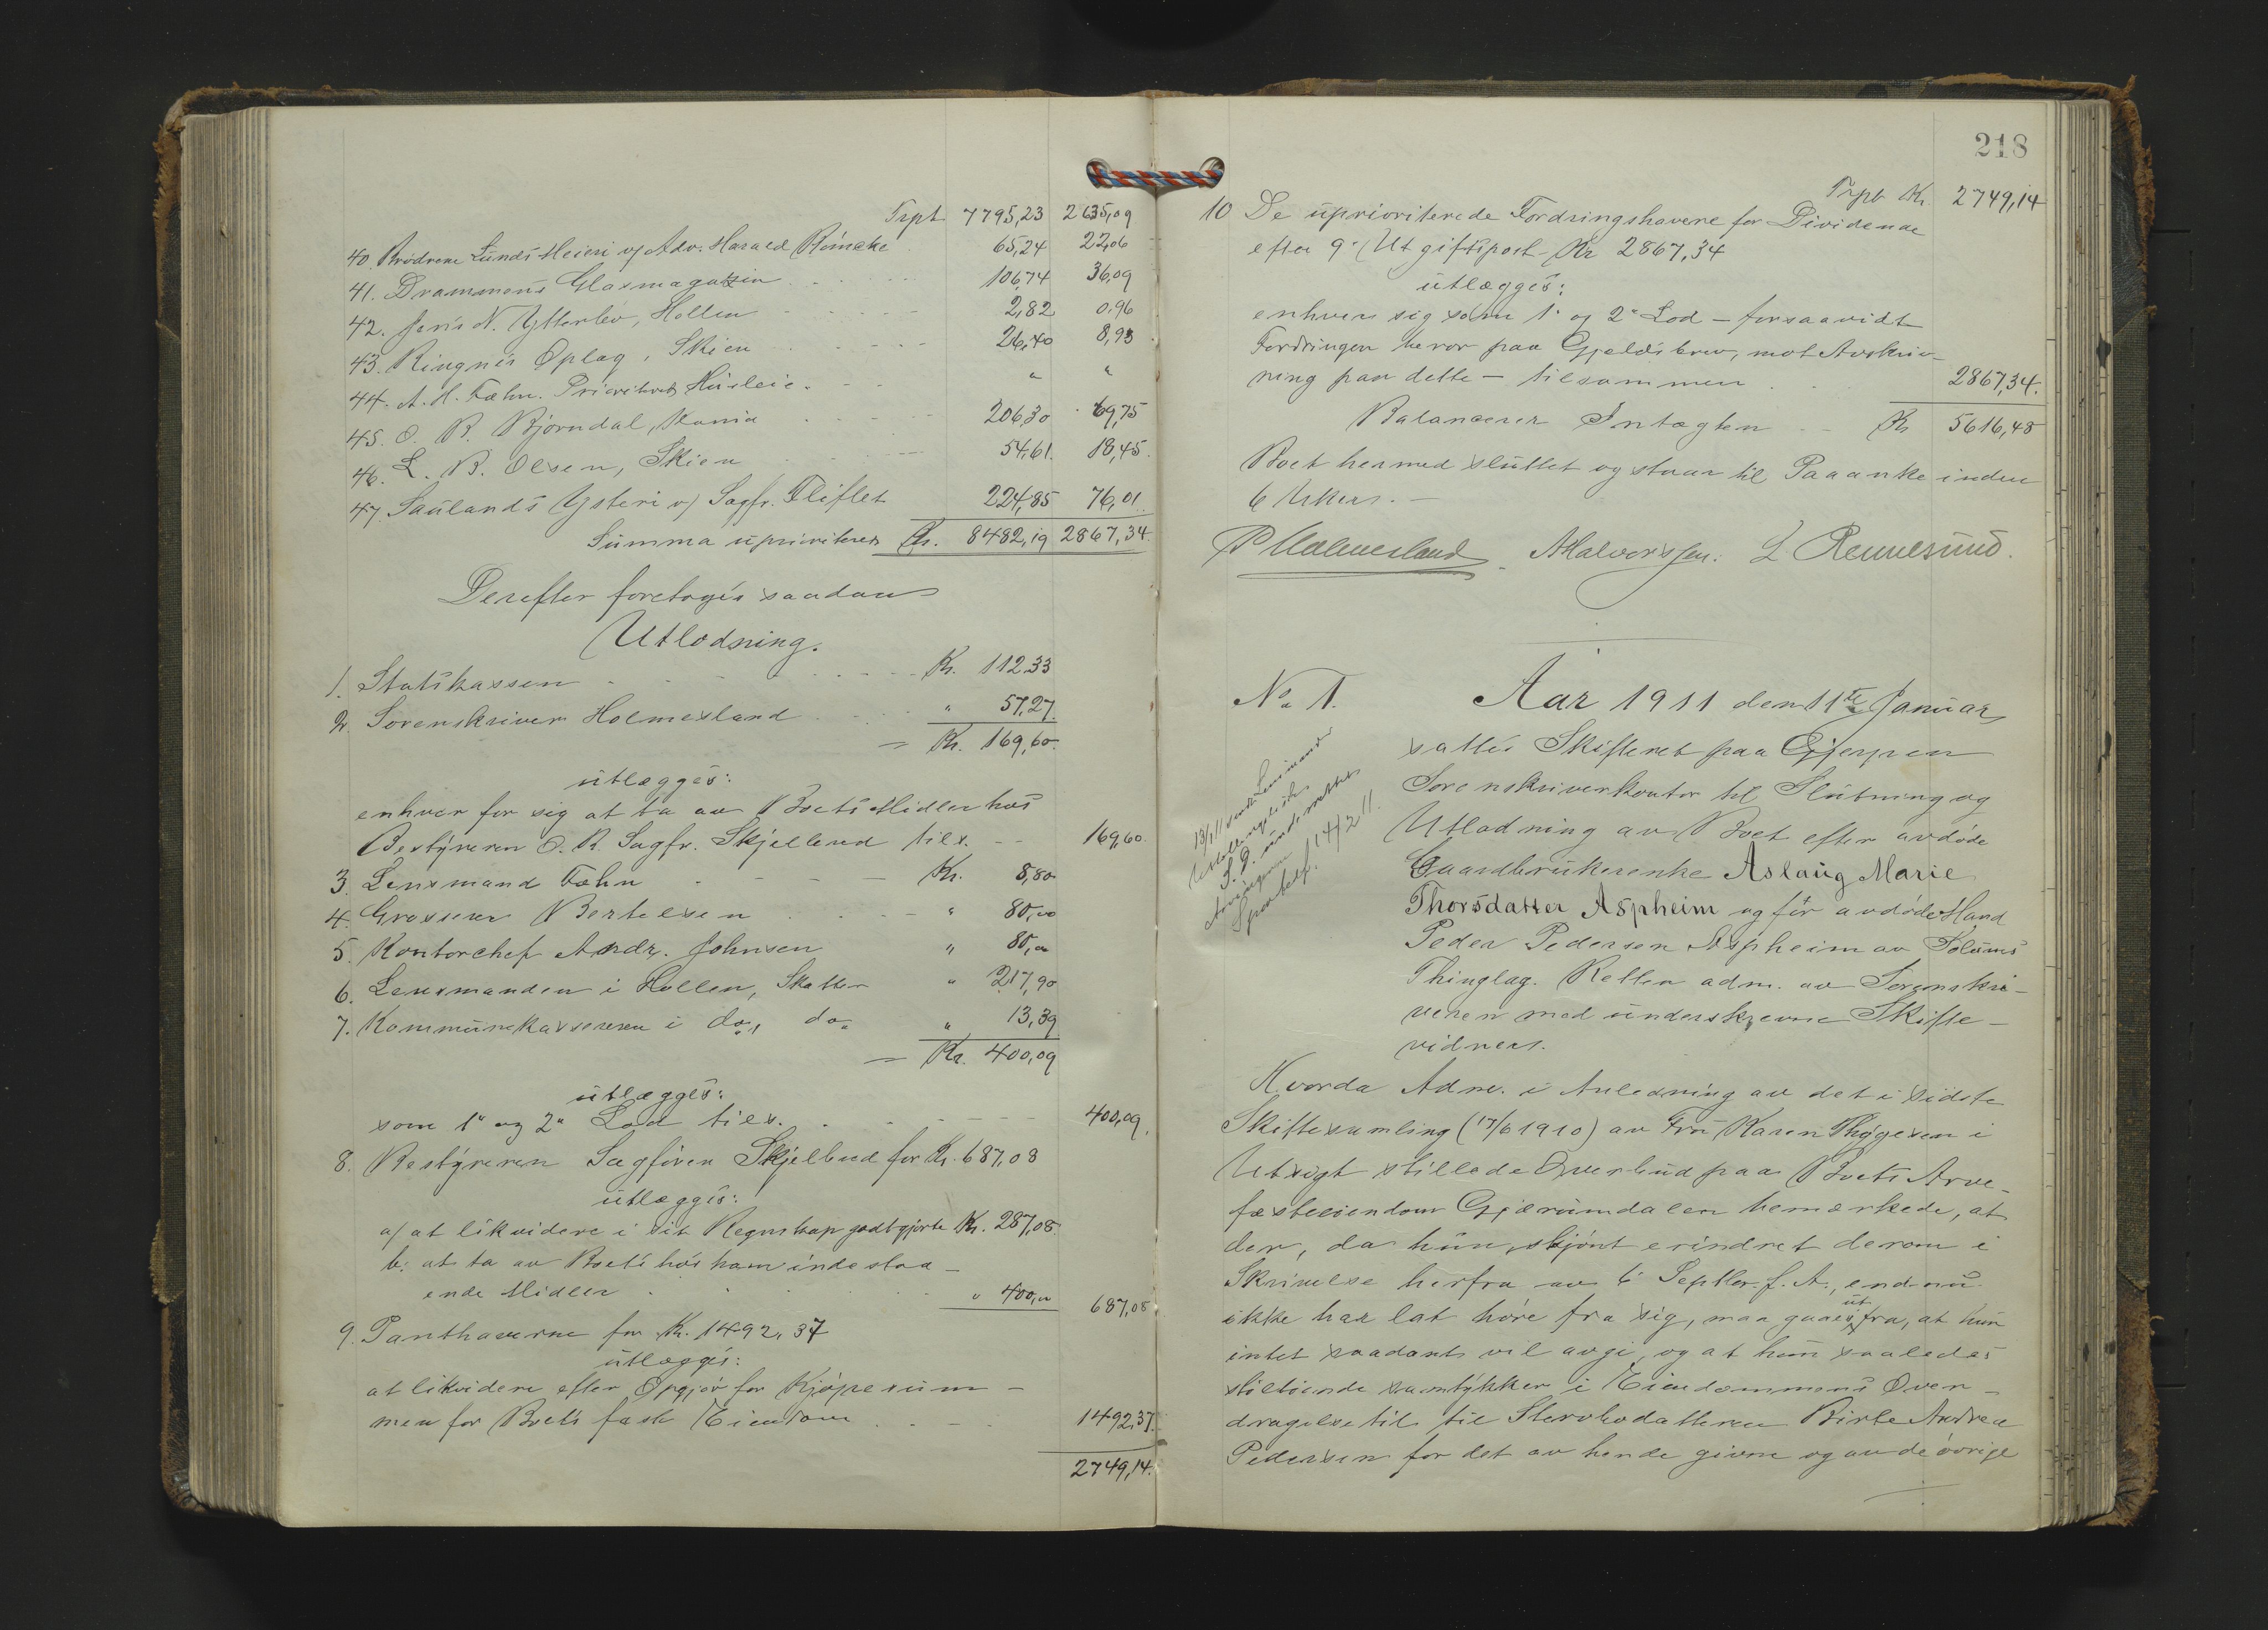 Trpt 7795,23 2635,09
40. Brødrene Lunds Meieri v/ Adv. Harald 65,24 22,06
41. Drammens Glasmagazin 106,74 36,09
42. Jens N. Ytterbø, Hollen 2,82 0,96
43. Ringnes Oplag, Skien 26,40 8,93
44. A. H. Fæhn. Prioritert, Husleie. " "
45. O. B. Bjørndal, Kania 206,30 69,75
46. L. B. Olsen, Skien 54,61. 18,45.
47. Saulands Ysteri v/ Sagfr. Fliflet 224,85 76,01
Summa uprioriteret Kr. 8482,19 2867,34.
Derefter foretoges saadan
Utlodning.
1. Statskassen Kr. 112,33
2. Sorenskriver Holmesland " 57,27.
= Kr. 169,60.
utlægges:
enhver for sig at ta av Boets Midler hos
Bestyreren O. R. Sagfr. Skjelbred tils. 169,60
3. Lensmand Fæhn Kr. 8,80
4. Grosserer Bertelsen " 80,00
5. Kontorchef Andr. Johnsen " 80,00
6. Lensmanden i Hollen, Skatter " 217,90
7. Kommunekassereren i do, do " 13,39
= Kr. 400,09
utlægges:
som 1" og 2" Lod tils. 400,09.
8. Bestyreren Sagfører Skjelbred for Kr. 687,08
utlægges:
a/ at likvidere i sit Regnskap godtgjorte Kr. 287,08.
b: at ta av Boets hos ham indestaa-
ende Midler " 400,00 687,08
9. Panthaverne for Kr. 1492,37
utlægges:
at likvidere efter Opgjør for Kjøpesum-
men for Boets faste Eiendom 1492,37.
2749,14.
218
Trpt Kr. 2749,14
10 De uprioriterede Fordringshavere for Dividende
efter 9" Utgiftspost Kr 2867,34
utlægges:
enhver sig som 1" og 2" Lod – forsaavidt
Fordringen beror paa Gjeldsbrev, mot Avskriv-
ning paa dette – tilsammen 2867,34.
Balancerer Intægten Kr 5616,48
Boet hermed sluttet og staar til Paaanke inden
6 Uker. –
P Holmesland AHalvorssen. L Rennesund.
No 1.
Aar 1911 den 11te Januar
sattes Skifteret paa Gjerpen
Sorenskriverkontor til Slutning og
Utlodning av Boet efter avdøde
Gaardbrukerenke Aslaug Marie
Thorsdatter Aspheim og før avdøde Mand
Peder Pedersen Aspheim av Solums
Thinglag. Retten adm. av Sorenskri-
veren med underskrevne Skifte-
vidner.
13/1 11 sendt Lensmanden
S. D. underrettet
Arvingen
14/2 11.
Hvorda Adm. i Anledning av det i sidste
Skiftesamling (17/6 1910) av Fru Karen Thygesen i
Utsigt stillede Overbud paa Boets Arve-
fæsteeiendom Gjærumdalen bemærkede, at
der, da hun, skjønt erindret derom i
Skrivelse herfra av 6 Septbr. f. A., endnu
ikke har lat høre fra sig, maa gaaes ut fra, at hun
intet saadant vil avgi, og at hun saaledes
stiltiende samtykker i Eiendommens Over-
dragelse til til Stervbodatteren Birte Andrea
Pedersen for det av hende givne og av de øvrige